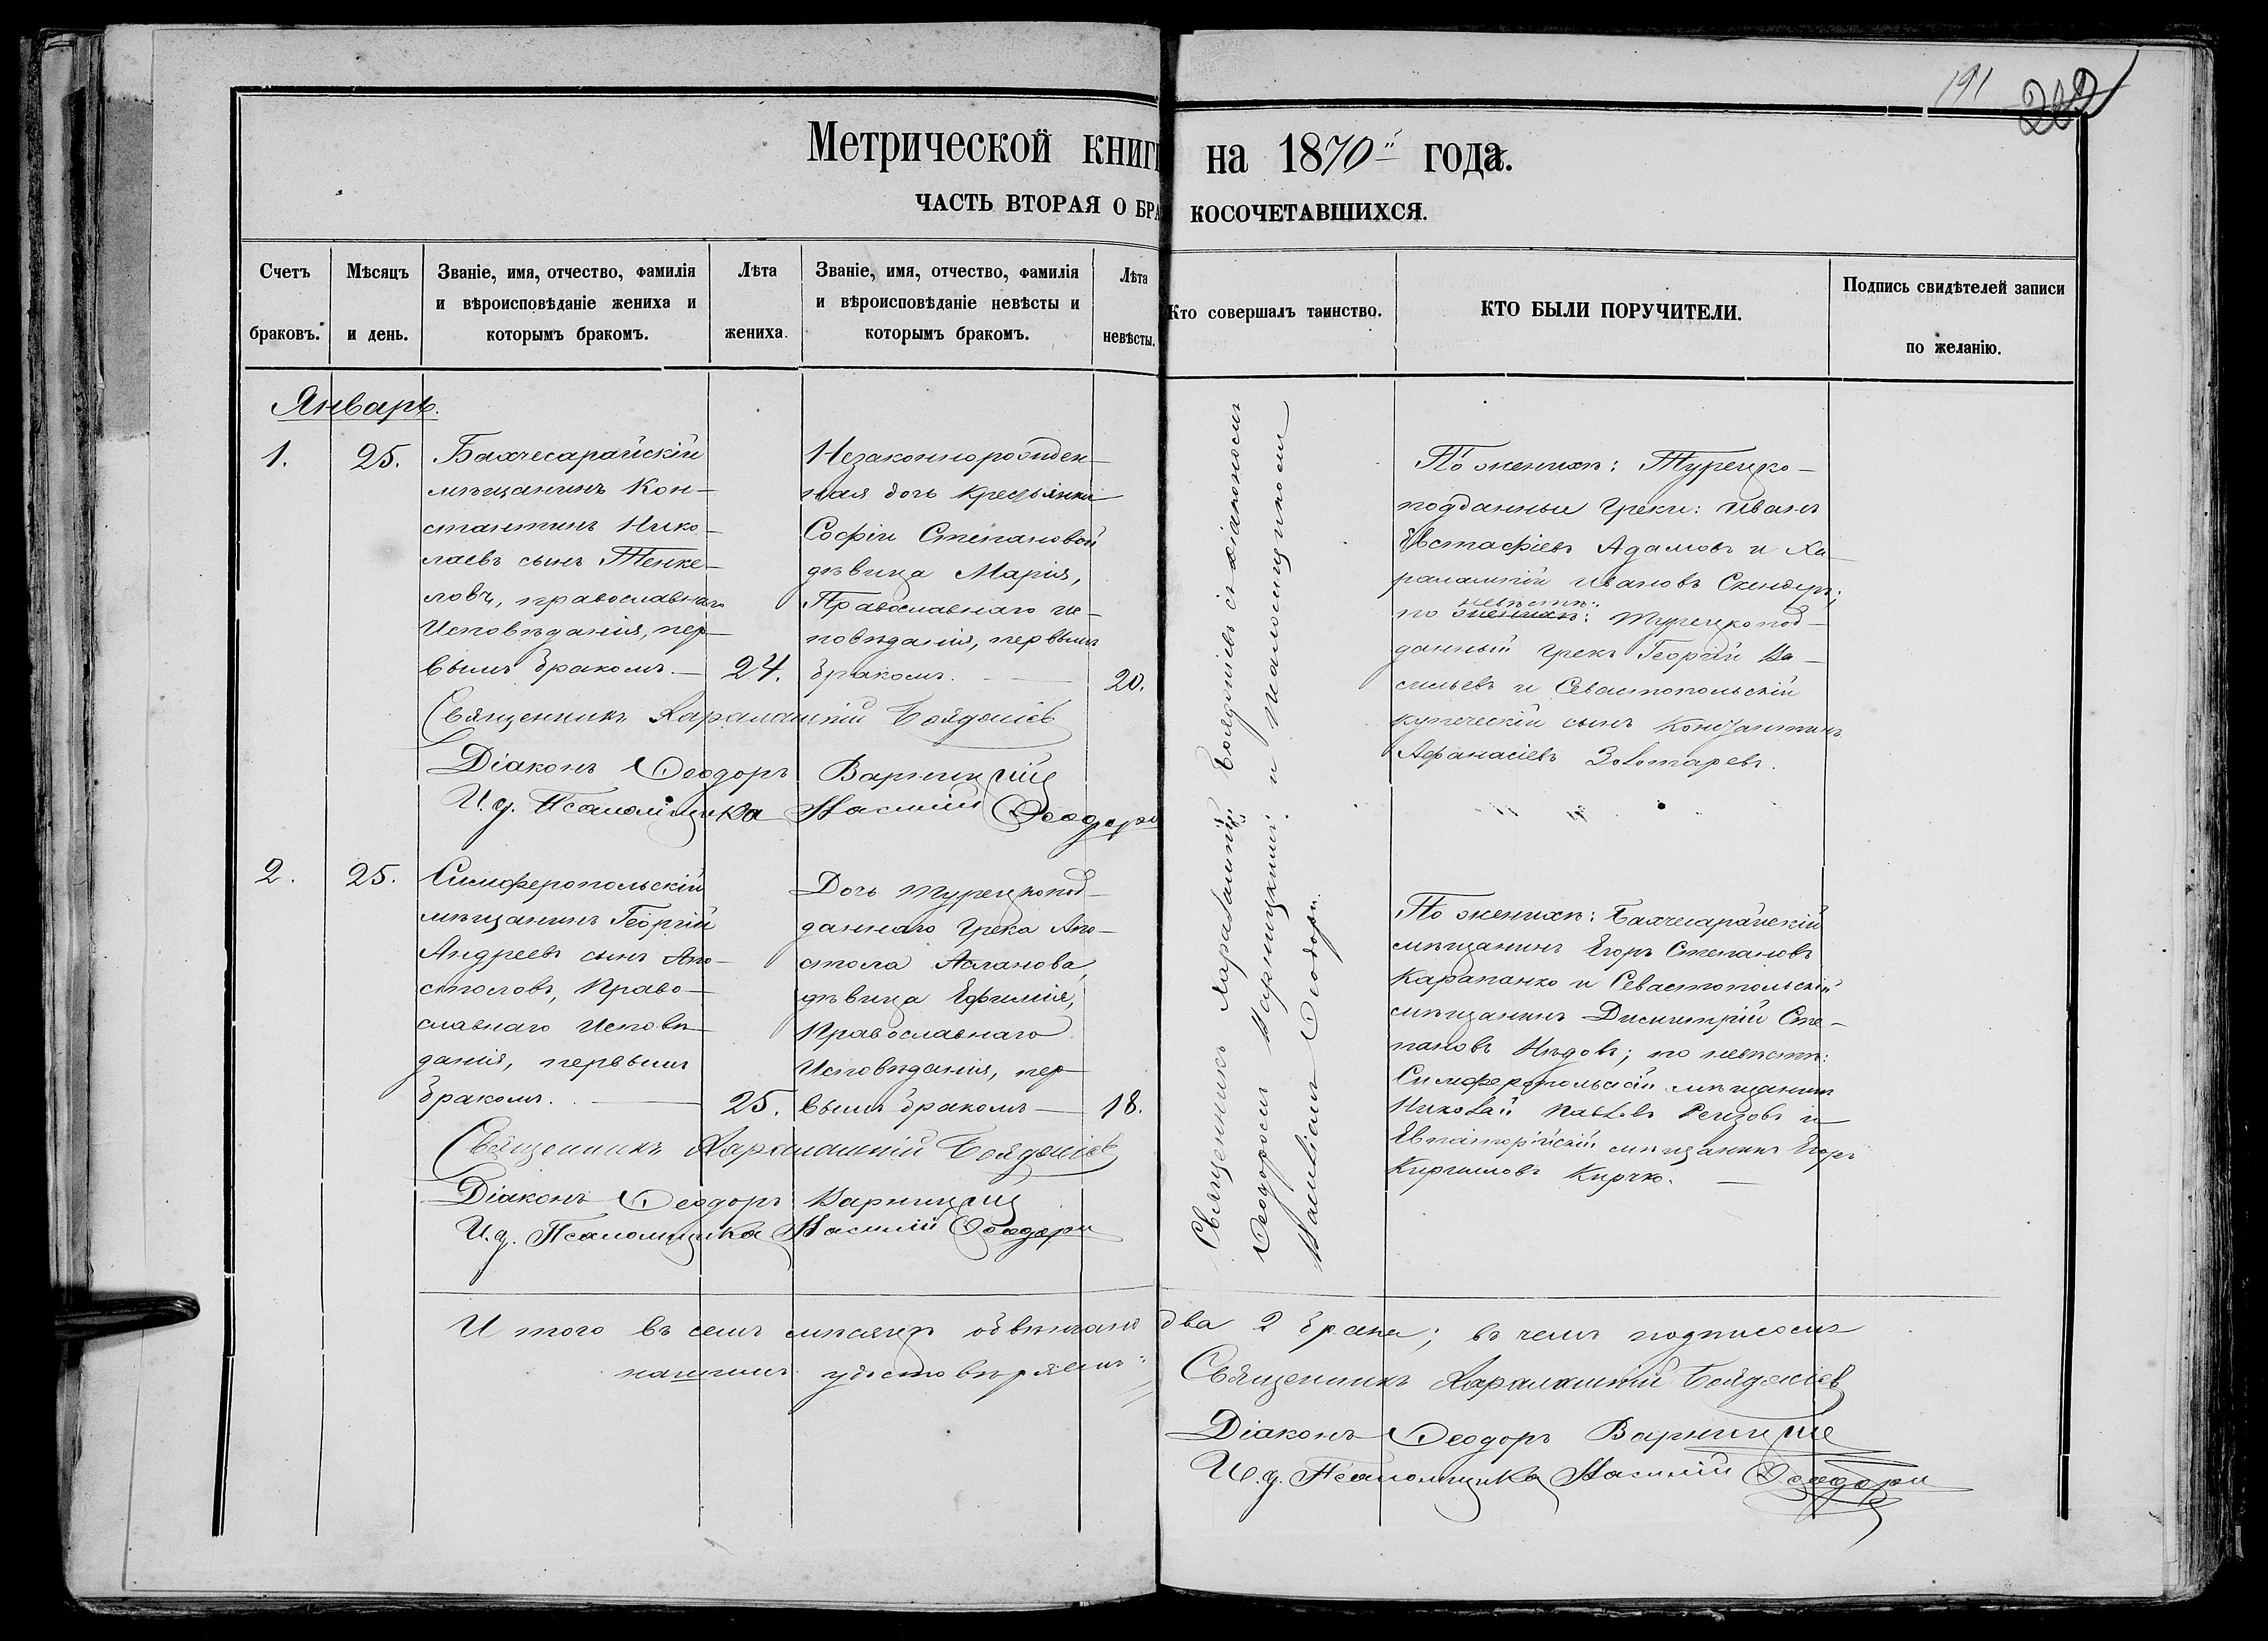 191
202
Метрической книги на 1870 года.
ЧАСТЬ ВТОРАЯ О БРАКОСОЧЕТАВШИХСЯ.
Счетъ
браковъ.
Мѣсяцъ
и день.
Званіе, имя, отчество, фамилія
и вѣроисповѣданіе жениха и
которымъ бракомъ.
Лѣта
жениха.
Званіе, имя, отчество, фамилія
и вѣроисповѣданіе невѣсты и
которымъ бракомъ.
Лѣта
невѣсты.
Кто совершалъ таинство.
КТО БЫЛИ ПОРУЧИТЕЛИ.
Подпись свидѣтелей записи
по желанію.
Январь.
1.
25.
Бахчесарайскій
мѣщанинъ Кон-
стантинъ Нико-
лаевъ сынъ Тенке-
ловъ, православнаго
Исповѣданія, пер-
вымъ бракомъ.
24.
Незаконнорожден-
ная дочь крестьянки
Софіи Степановой
дѣвица Марія,
Православнаго ис-
повѣданія, первымъ
бракомъ.
20.
По женихѣ: Турецко-
подданные Греки: Иванъ
Евстафіевъ Адамовъ и Ха-
ралампій Ивановъ Скендеръ;
невѣстѣ:
по женихѣ: Турецкопод-
данный грекъ Георгій Ва-
сильевъ и Севастопольскій
купеческій сынъ Константинъ
Афанасіевъ Золотаревъ.
Священникъ Харалампій Бояджіевъ
Діаконъ Ѳеодоръ Варницкій
И. д. Псаломщика Василій Ѳеодори
2.
25.
Симферопольскій
мѣщанинъ Георгій
Андреевъ сынъ Апо-
столовъ, Право-
славнаго Исповѣ-
данія, первымъ
бракомъ.
25.
Дочь турецкопод-
даннаго Грека Апо-
стола Асланова,
дѣвица Ефимія,
Православнаго
Исповѣданія, пер-
вымъ бракомъ
18.
По женихѣ: Бахчесарайскій
мѣщанинъ Егоръ Степановъ
Карапанко и Севастопольскій
мѣщанинъ Димитрій Сте-
пановъ Нѣдовъ; по невѣстѣ:
Симферопольскій мѣщанинъ
Николай Павловъ Рензовъ и
Евпаторійскій мѣщанинъ Егоръ
Кирилловъ Кирчо.
Священникъ Харалампій Бояджіевъ
Діаконъ Ѳеодоръ Варницкій
И. д. Псаломщика Василій Ѳеодори
Священникъ Харалампій Бояджіевъ съ діакономъ
Ѳеодоромъ Варницкимъ и псаломщикомъ
Василіемъ Ѳеодори.
И того въ семъ мѣсяцѣ обвѣнчано два 2 брака; въ чемъ подписомъ
нашимъ удостовѣряемъ:
Священникъ Харалампій Бояджіевъ
Діаконъ Ѳеодоръ Варницкій
И. д. Псаломщика Василій Ѳеодори